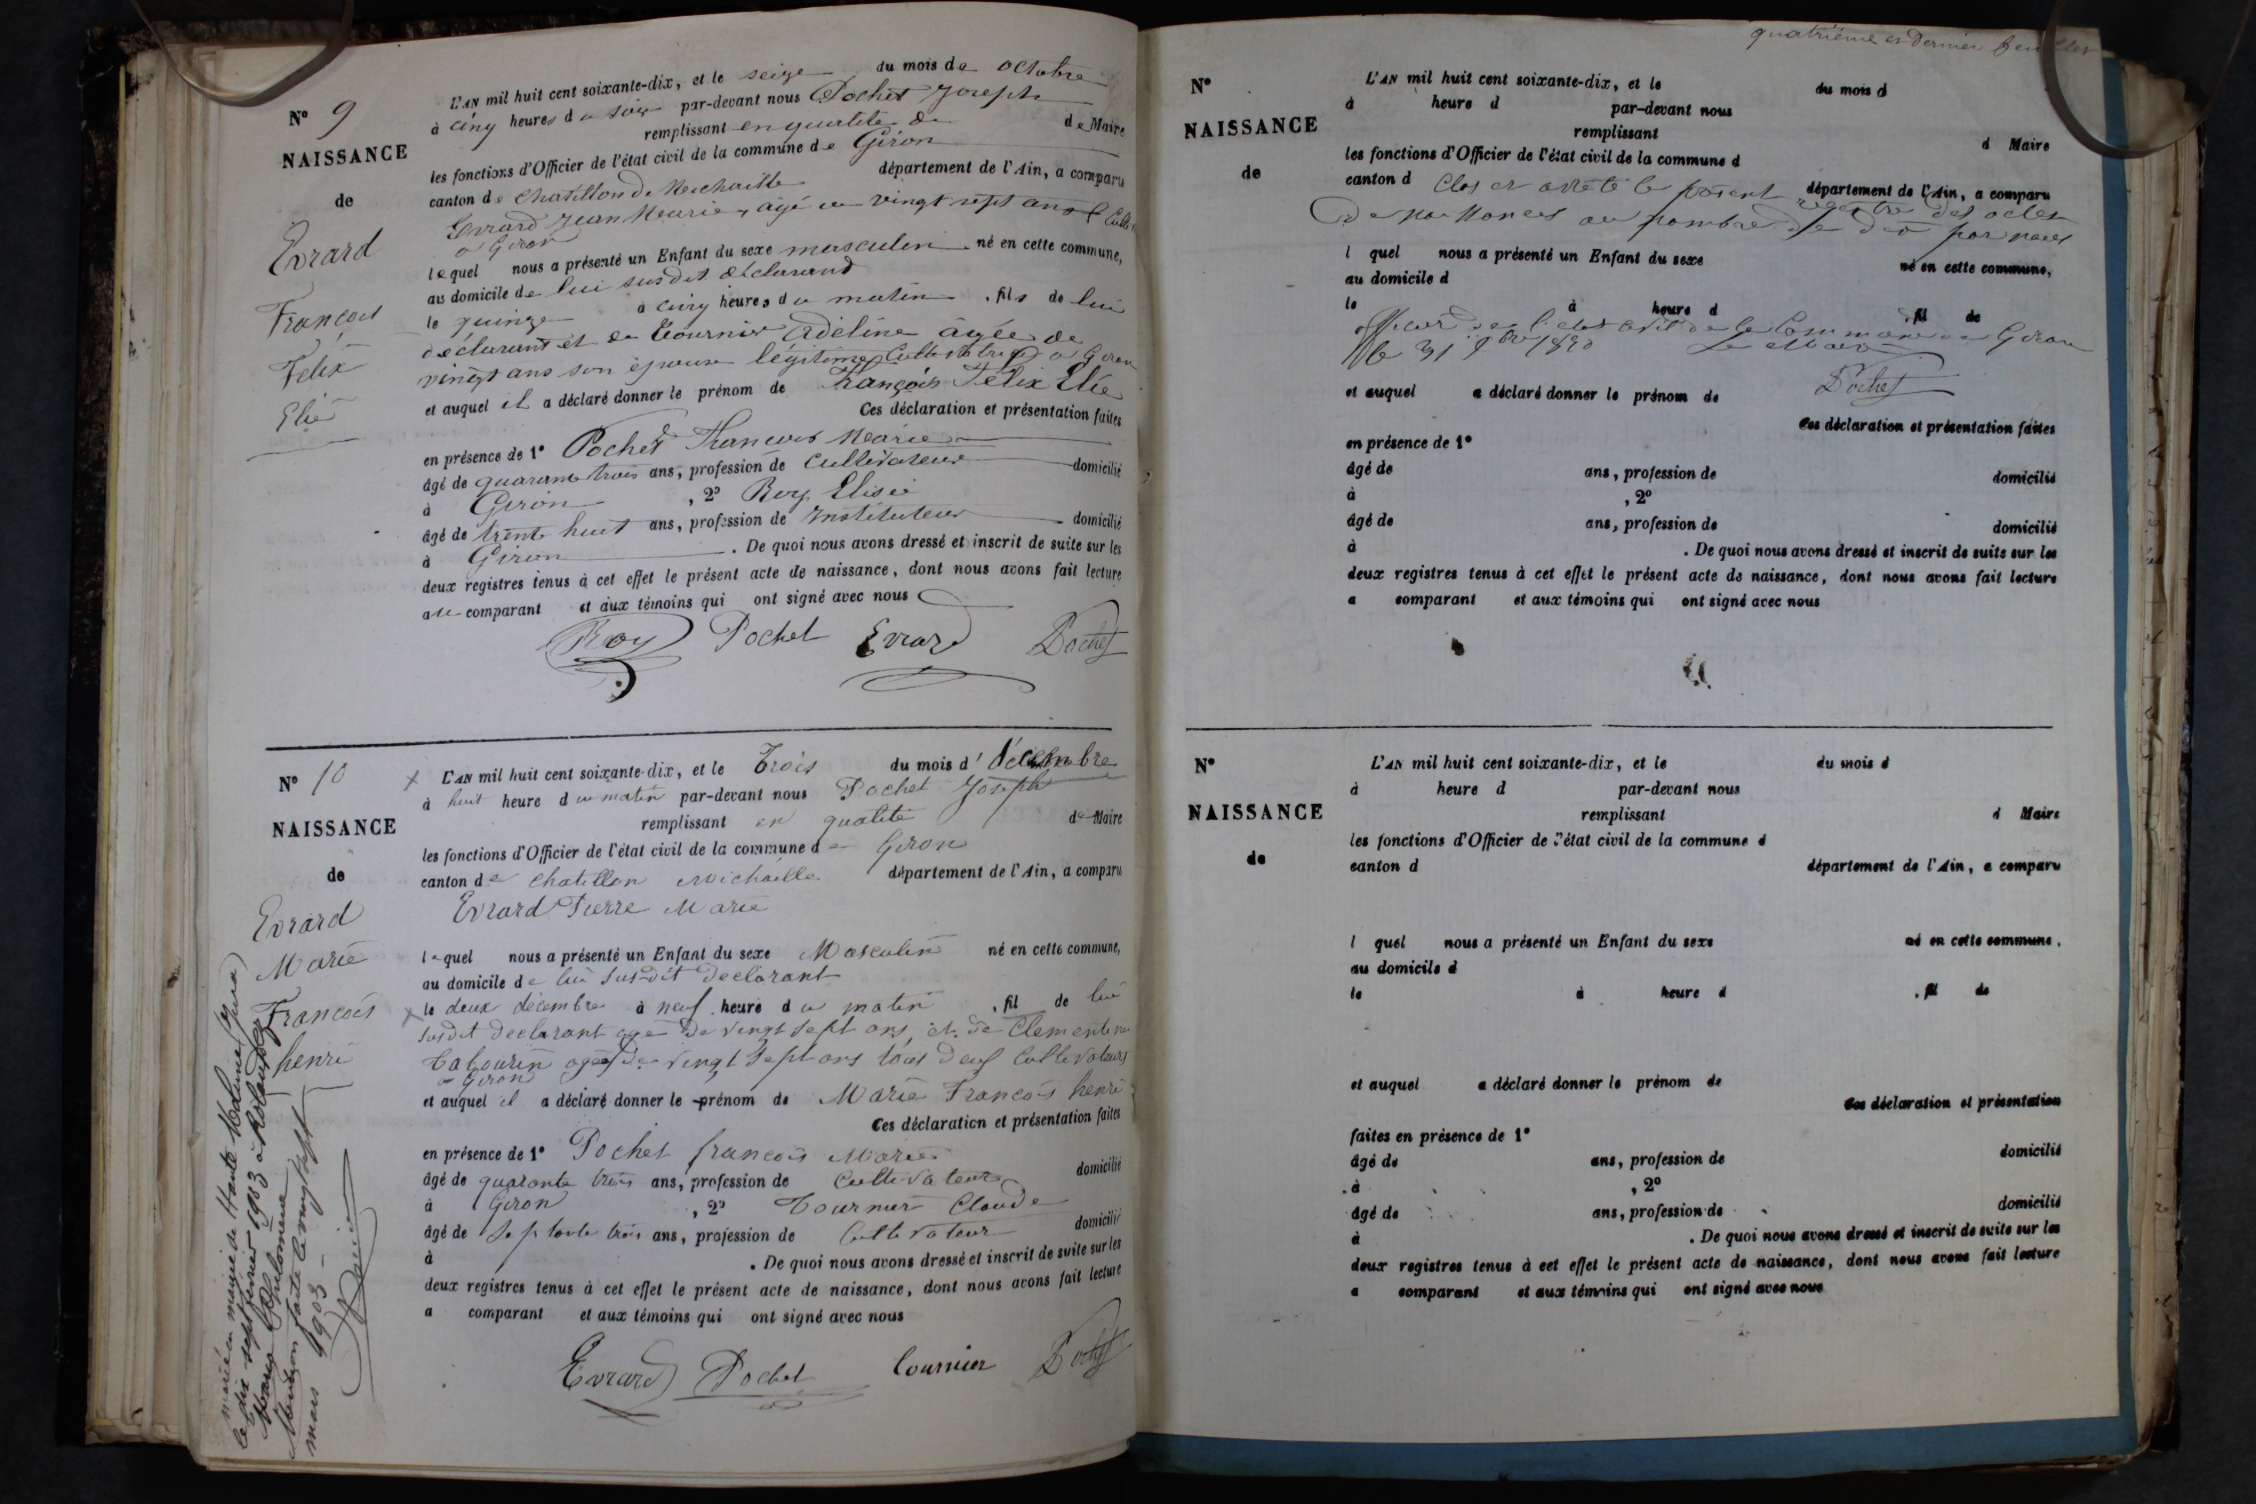 N° 9
NAISSANCE
de
Evrard
François
Felix
Elie
L'AN mil huit cent soixante-dix, et le seize du mois de octobre
à cinq heures du soir par-devant nous Pochet Joseph
remplissant en qualité de de Maire
les fonctions d'Officier de l'état civil de la commune de Giron
canton de Chatillon de Michaille département de l'Ain, a comparu
Evrard Jean Marie, agé de vingt sept ans
a Giron
lequel nous a présenté un Enfant du sexe masculin né en cette commune,
au domicile de lui susdit déclarant
le quinze à cinq heures du matin, fils de lui
déclarant et de Tournier Adeline âgée de
vingt ans son épouse légitime Cultivatrice a Giron
et auquel il a déclaré donner le prénom de François Félix Elie
Ces déclaration et présentation faites
en présence de 1° Pochet François Marie
âgé de quarante trois ans, profession de Cultivateur domicilié
à Giron, 2° Roy Elisée
âgé de trente huit ans, profession de Instituteur domicilié
à Giron. De quoi nous avons dressé et inscrit de suite sur les
deux registres tenus à cet effet le présent acte de naissance, dont nous avons fait lecture
au comparant et aux témoins qui ont signé avec nous
Roy Pochet Evrard Pochet
N° 10
NAISSANCE
de
Evrard
Marie
François
henri
marié en mairie de Haute Molune (Jura)
le dix sept février 1903 à
Mention faite le vingt sept
mars 1903
L'AN mil huit cent soixante-dix, et le Trois du mois d'décembre
à huit heure du matin par-devant nous Pochet Joseph
remplissant en qualité de Maire
les fonctions d'Officier de l'état civil de la commune de Giron
canton de Chatillon Michaille département de l'Ain, a comparu
Evrard Pierre Marie
lequel nous a présenté un Enfant du sexe Masculin né en cette commune,
au domicile de lui susdit declarant
le deux décembre à neuf heure du matin, fil de lui
susdit declarant agé de vingt sept ans, et de Clementine
Tabourin agée de vingt sept ans tous deux Cultivateurs
a Giron
et auquel il a déclaré donner le prénom de Marie François henri
Ces déclaration et présentation faites
en présence de 1° Pochet françois Marie
âgé de quarante trois ans, profession de Cultivateur domicilié
à Giron, 2° Tournier Claude
âgé de septante trois ans, profession de Cultivateur domicilié
à . De quoi nous avons dressé et inscrit de suite sur les
deux registres tenus à cet effet le présent acte de naissance, dont nous avons fait lecture
a comparant et aux témoins qui ont signé avec nous
Evrard Pochet Tournier Pochet
quatrième et dernier feuillet
N°
NAISSANCE
de
L'AN mil huit cent soixante-dix, et le du mois d
à heure d par-devant nous
remplissant d Maire
les fonctions d'Officier de l'état civil de la commune d
canton d département de l'Ain, a comparu
Clos et arrêté le présent registre des actes
de naissances au nombre de dix par nous
l quel nous a présenté un Enfant du sexe né en cette commune,
au domicile d
le à heure d, fil de
officier de l'etat civil de la Commune de Giron
le 31 Xbre 1870 Le Maire
Pochet
et auquel a déclaré donner le prénom de
Ces déclaration et présentation faites
en présence de 1°
âgé de ans, profession de domicilié
à , 2°
âgé de ans, profession de domicilié
à . De quoi nous avons dressé et inscrit de suite sur les
deux registres tenus à cet effet le présent acte de naissance, dont nous avons fait lecture
a comparant et aux témoins qui ont signé avec nous
N°
NAISSANCE
de
L'AN mil huit cent soixante-dix, et le du mois d
à heure d par-devant nous
remplissant d Maire
les fonctions d'Officier de l'état civil de la commune d
canton d département de l'Ain, a comparu
l quel nous a présenté un Enfant du sexe né en cette commune,
au domicile d
le à heure d , fil de
et auquel a déclaré donner le prénom de
Ces déclaration et présentation
faites en présence de 1°
âgé de ans, profession de domicilié
à , 2°
âgé de ans, profession de domicilié
à . De quoi nous avons dressé et inscrit de suite sur les
deux registres tenus à cet effet le présent acte de naissance, dont nous avons fait lecture
a comparant et aux témoins qui ont signé avec nous